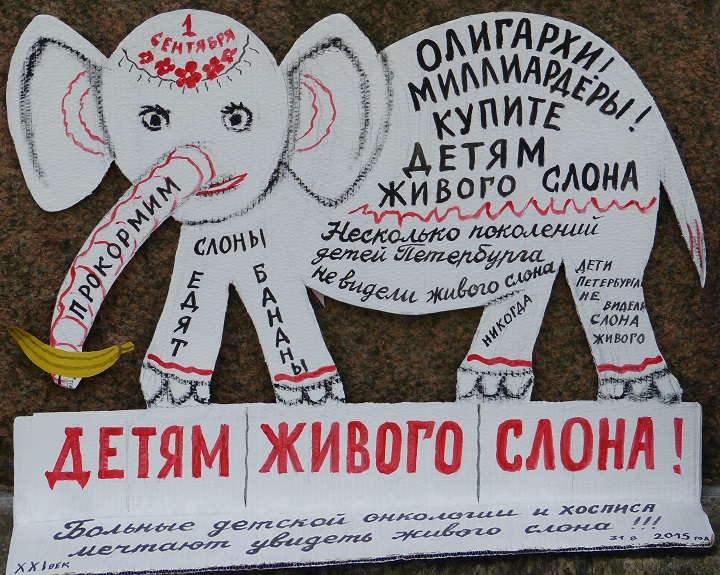 1
СЕНТЯБРЯ
ОЛИГАРХИ!
МИЛЛИАРДЕРЫ!
КУПИТЕ
ДЕТЯМ
ЖИВОГО СЛОНА
ПРОКОРМИМ
СЛОНЫ
ЕДЯТ
БАНАНЫ
Несколько поколений
детей Петербурга
не видели живого слона
НИКОГДА
ДЕТИ
ПЕТЕРБУРГА
НЕ
ВИДЕЛИ
СЛОНА
ЖИВОГО
ДЕТЯМ ЖИВОГО СЛОНА!
Больные детской онкологии и хосписа
мечтают увидеть живого слона !!!
XXI ВЕК
31 8 2015 год